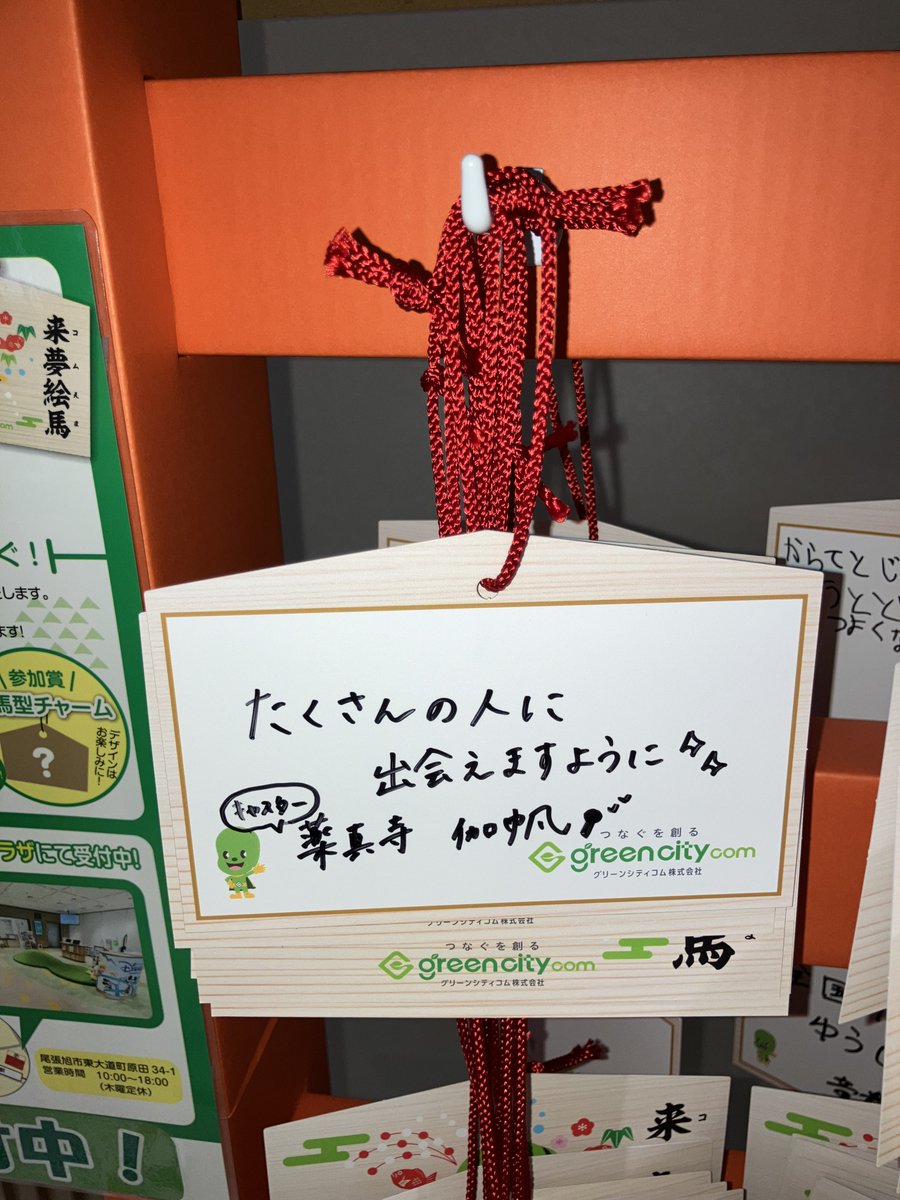 来夢絵馬
コムえま
ぐ！
たします。
ます！
参加賞
馬型チャーム
?
デザインは
お楽しみに！
ラザにて受付中!
尾張旭市東大道町原田 34-1
営業時間 10:00～18:00
（木曜定休）
付中！
たくさんの人に
出会えますように
キャスター
薬真寺 伽帆
つなぐを創る
greencity.com
グリーンシティコム株式会社
グリーンシティコム株式会社
つなぐを創る
greencity.com
グリーンシティコム株式会社
馬
ま
からてとじ
うとと
つよくな
ゆう
来
コ